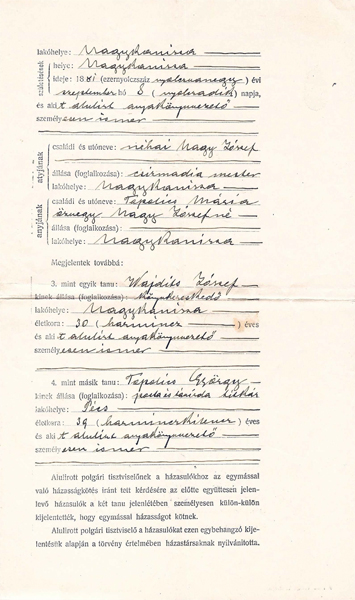 lakóhelye: Nagykanizsa
születésének
helye: Nagykanizsa
ideje: 18 81 (ezernyolcszáz nyolcvanegy) évi
szeptember hó 8 (nyolcadik) napja,
és akit alulírt anyakönyvvezető
személyesen ismer
atyjának
családi és utóneve: néhai Nagy József
állása (foglalkozása): csizmadia mester
lakóhelye: Nagykanizsa
anyjának
családi és utóneve: Topolics Mária
özvegy Nagy Józsefné
állása (foglalkozása):
lakóhelye: Nagykanizsa
Megjelentek továbbá:
3. mint egyik tanu: Wajdits József
kinek állása (foglalkozása): könyvkereskedő
lakóhelye: Nagykanizsa
életkora: 30 (harmincz) éves
és akit alulírt anyakönyvvezető
személyesen ismer
4. mint másik tanu: Topolics György
kinek állása (foglalkozása): posta és távirda
lakóhelye: Pécs
életkora: 39 (harminczkilencz) éves
és akit alulírt anyakönyvvezető
személyesen ismer
Alulirott polgári tisztviselőnek a házasulókhoz az egymással
való házasságkötés iránt tett kérdésére az előtte együttesen jelen-
levő házasulók a két tanu jelenlétében személyesen külön-külön
kijelentették, hogy egymással házasságot kötnek.
Alulirott polgári tisztviselő a házasulókat ezen egybehangzó kije-
lentésük alapján a törvény értelmében házastársaknak nyilvánította.